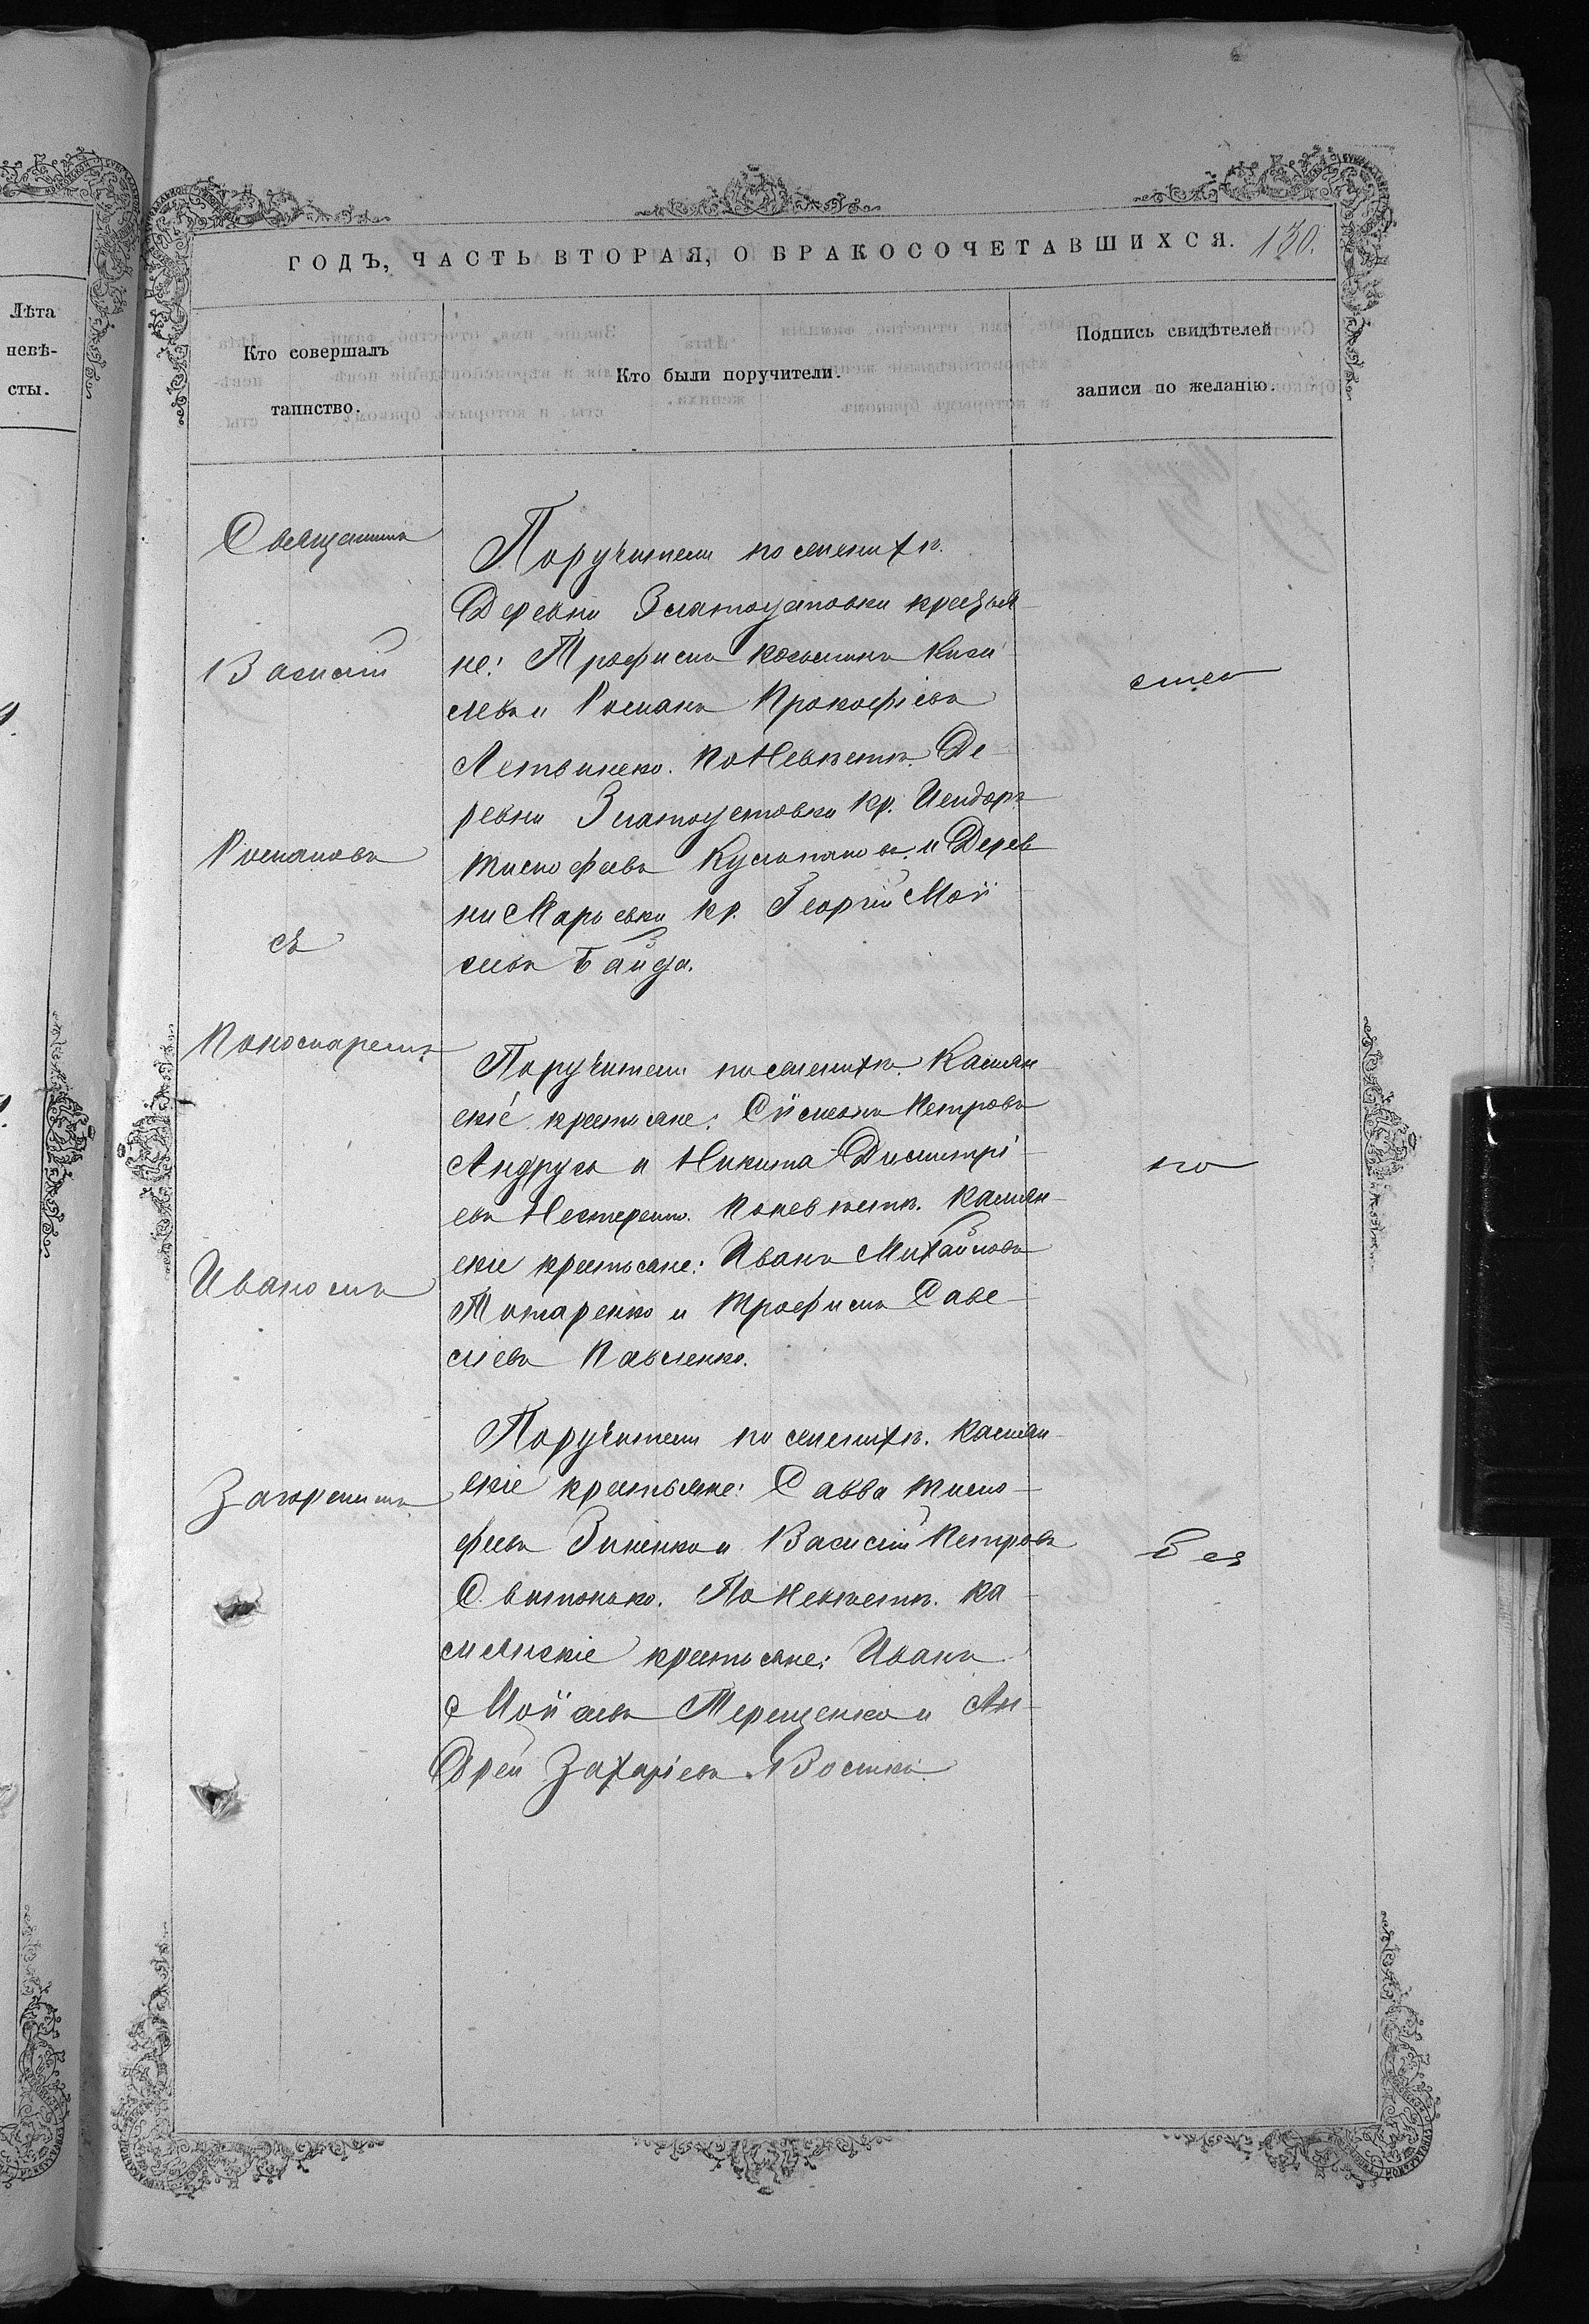 Лѣта
невѣ-
сты.
ГОДЪ, ЧАСТЬ ВТОРАЯ, О БРАКОСОЧЕТАВШИХСЯ. 130.
Кто совершалъ
таинство.
Кто были поручители.
Подпись свидѣтелей
записи по желанію.
Священникъ
Василій
Романовъ
съ
Псаломщикомъ
Иваномъ
Поручители по женихѣ:
Деревни Златоустовки крестья-
не: Трофимъ Козьминъ Кисе-
левъ и Романъ Прокофіевъ
Летвиненко. По Невѣстѣ: Де-
ревни Златоустовки кр. Исидоръ
Тимофеевъ и Дерев-
ни Марьевки кр. Георгій Мои-
сеевъ Байда.
Поручители по женихѣ: Камян-
скіе крестьяне: Сѵмеонъ Петровъ
Андрусъ и Никита Димитрі-
евъ Нестеренко. По невѣстѣ: Камян-
скіе крестьяне: Иванъ Михайловъ
Титаренко и Трофимъ Саве-
ліевъ Павленко.
Поручители по женихѣ: Камян-
скіе крестьяне: Савва Тимо-
феевъ Зиненко и Василій Петровъ
По Невѣстѣ: Ка-
мянскіе крестьяне: Иванъ
Моисеевъ Терещенко и Ан-
дрей Захаріевъ